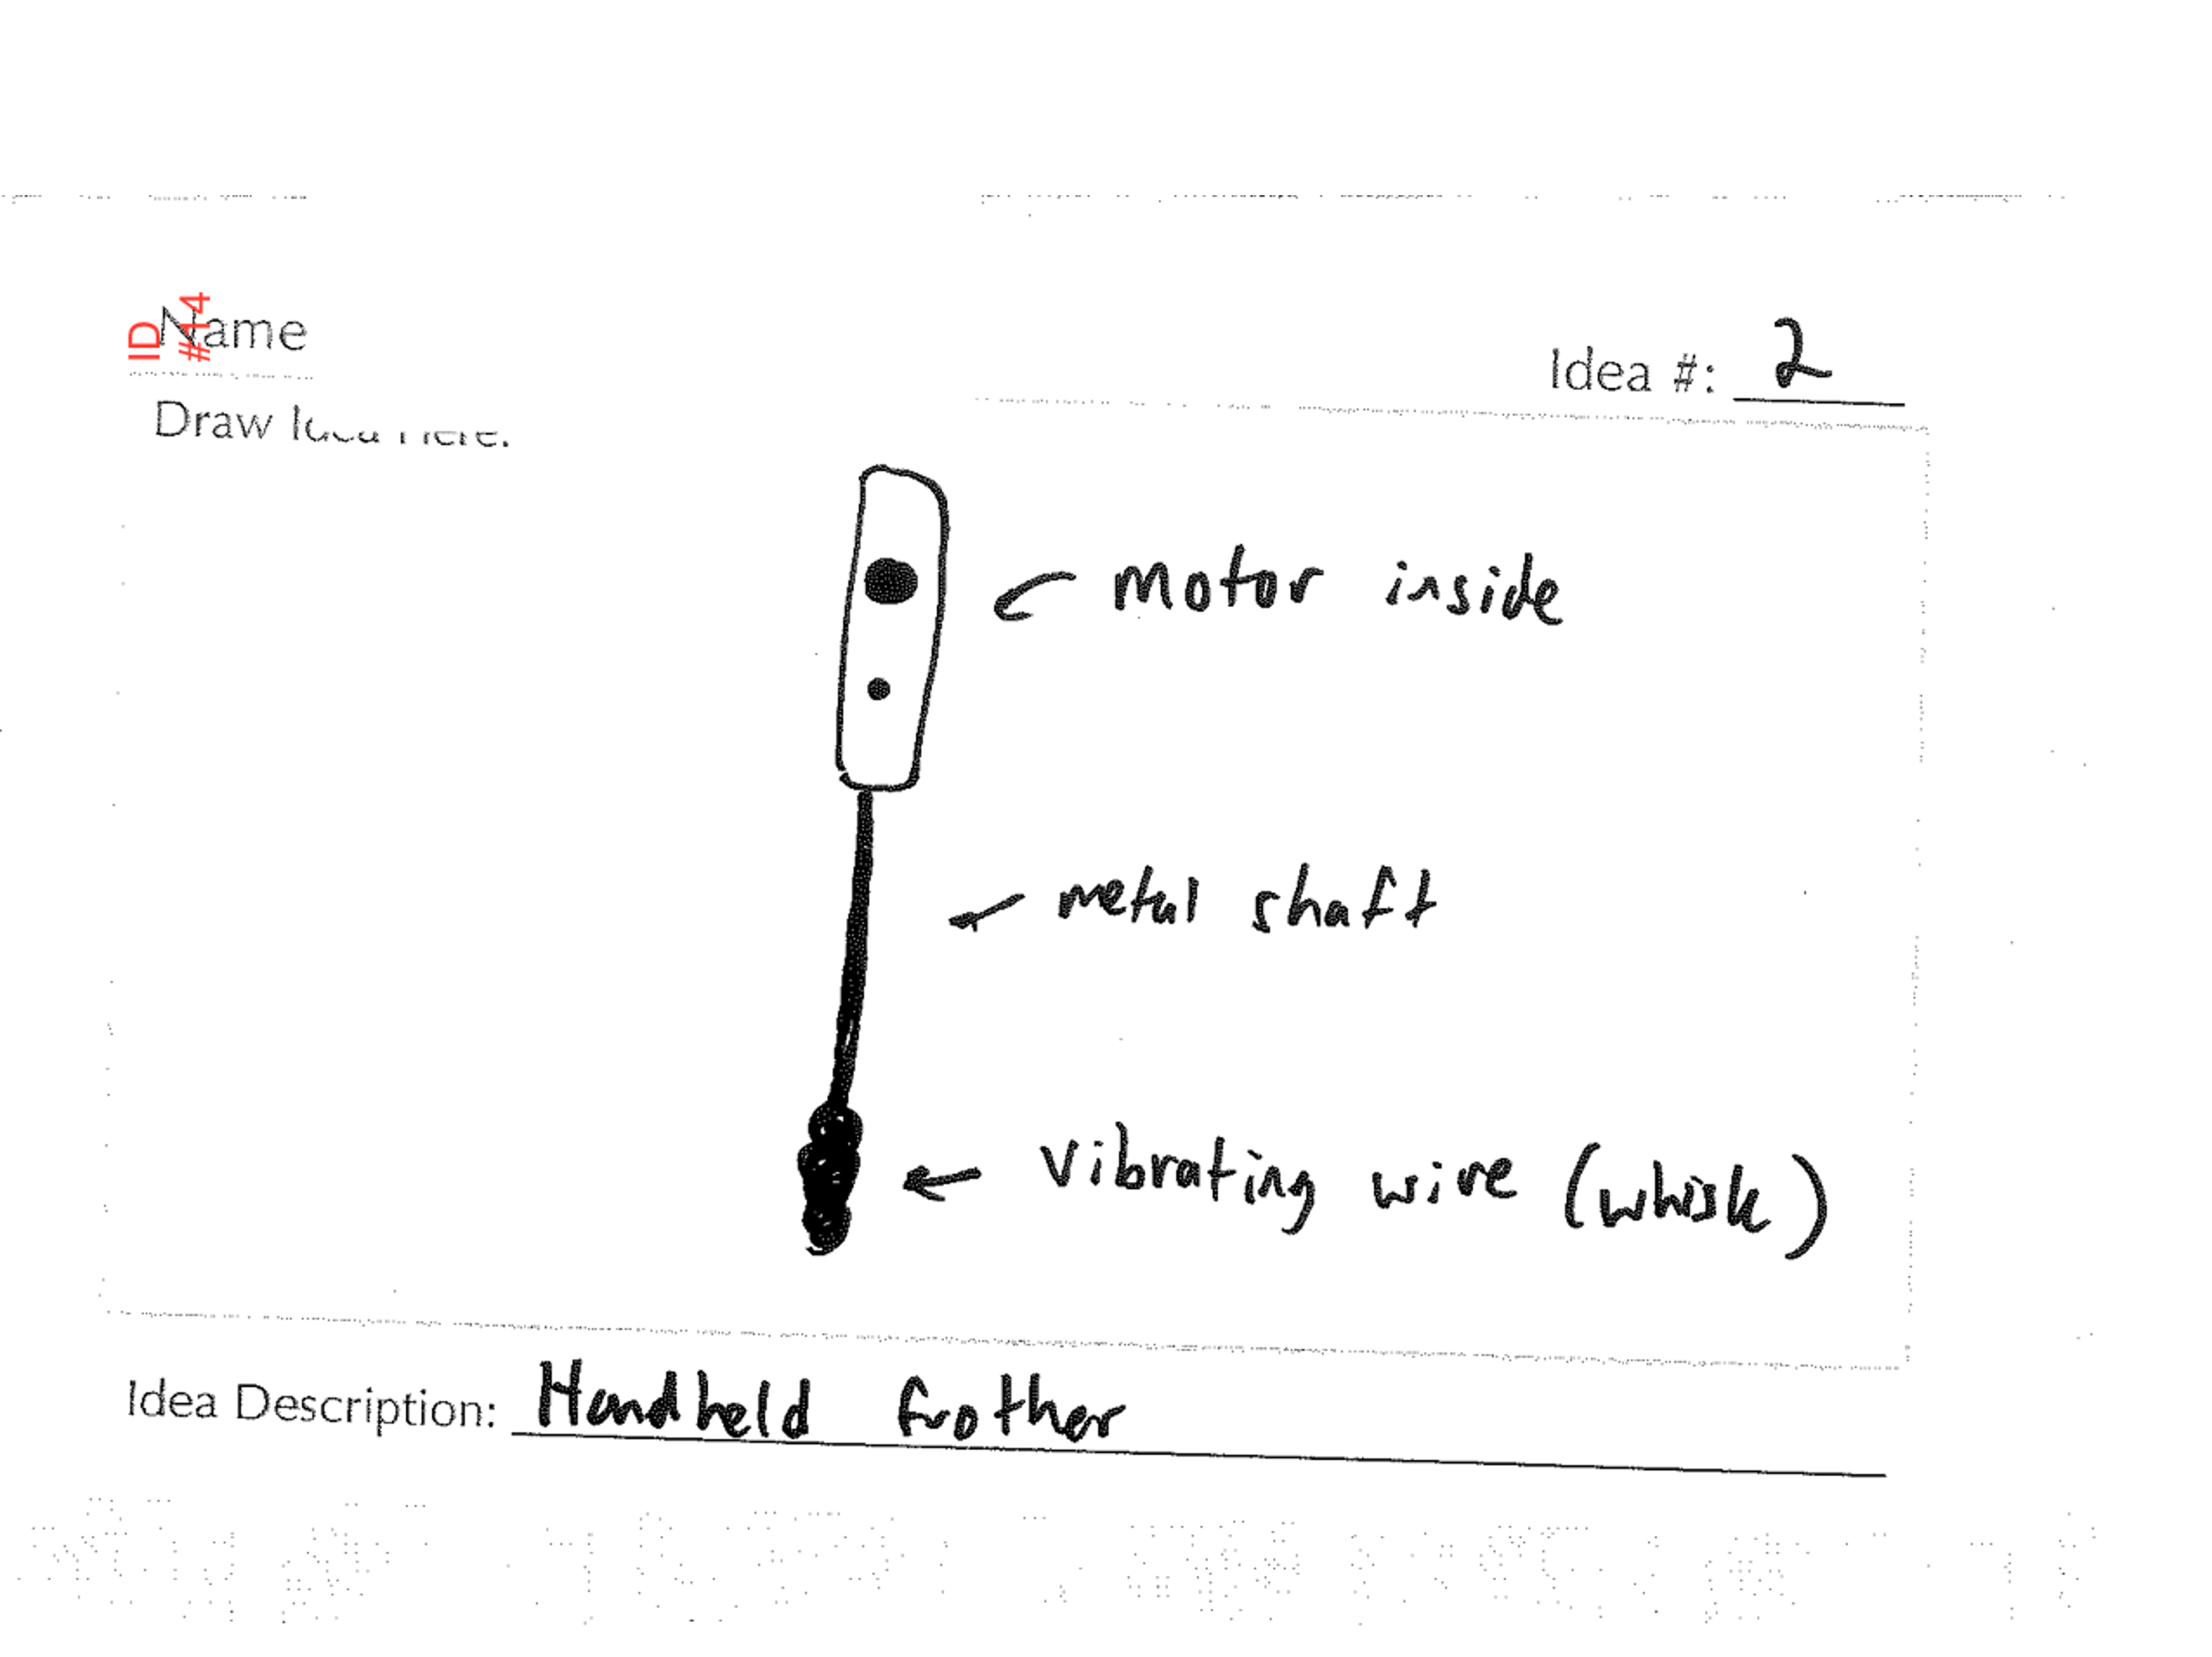 ID
#14
Name
Idea #: 2
Draw Idea Here:
motor inside
metal shaft
vibrating wire (whisk)
Idea Description: Handheld frother